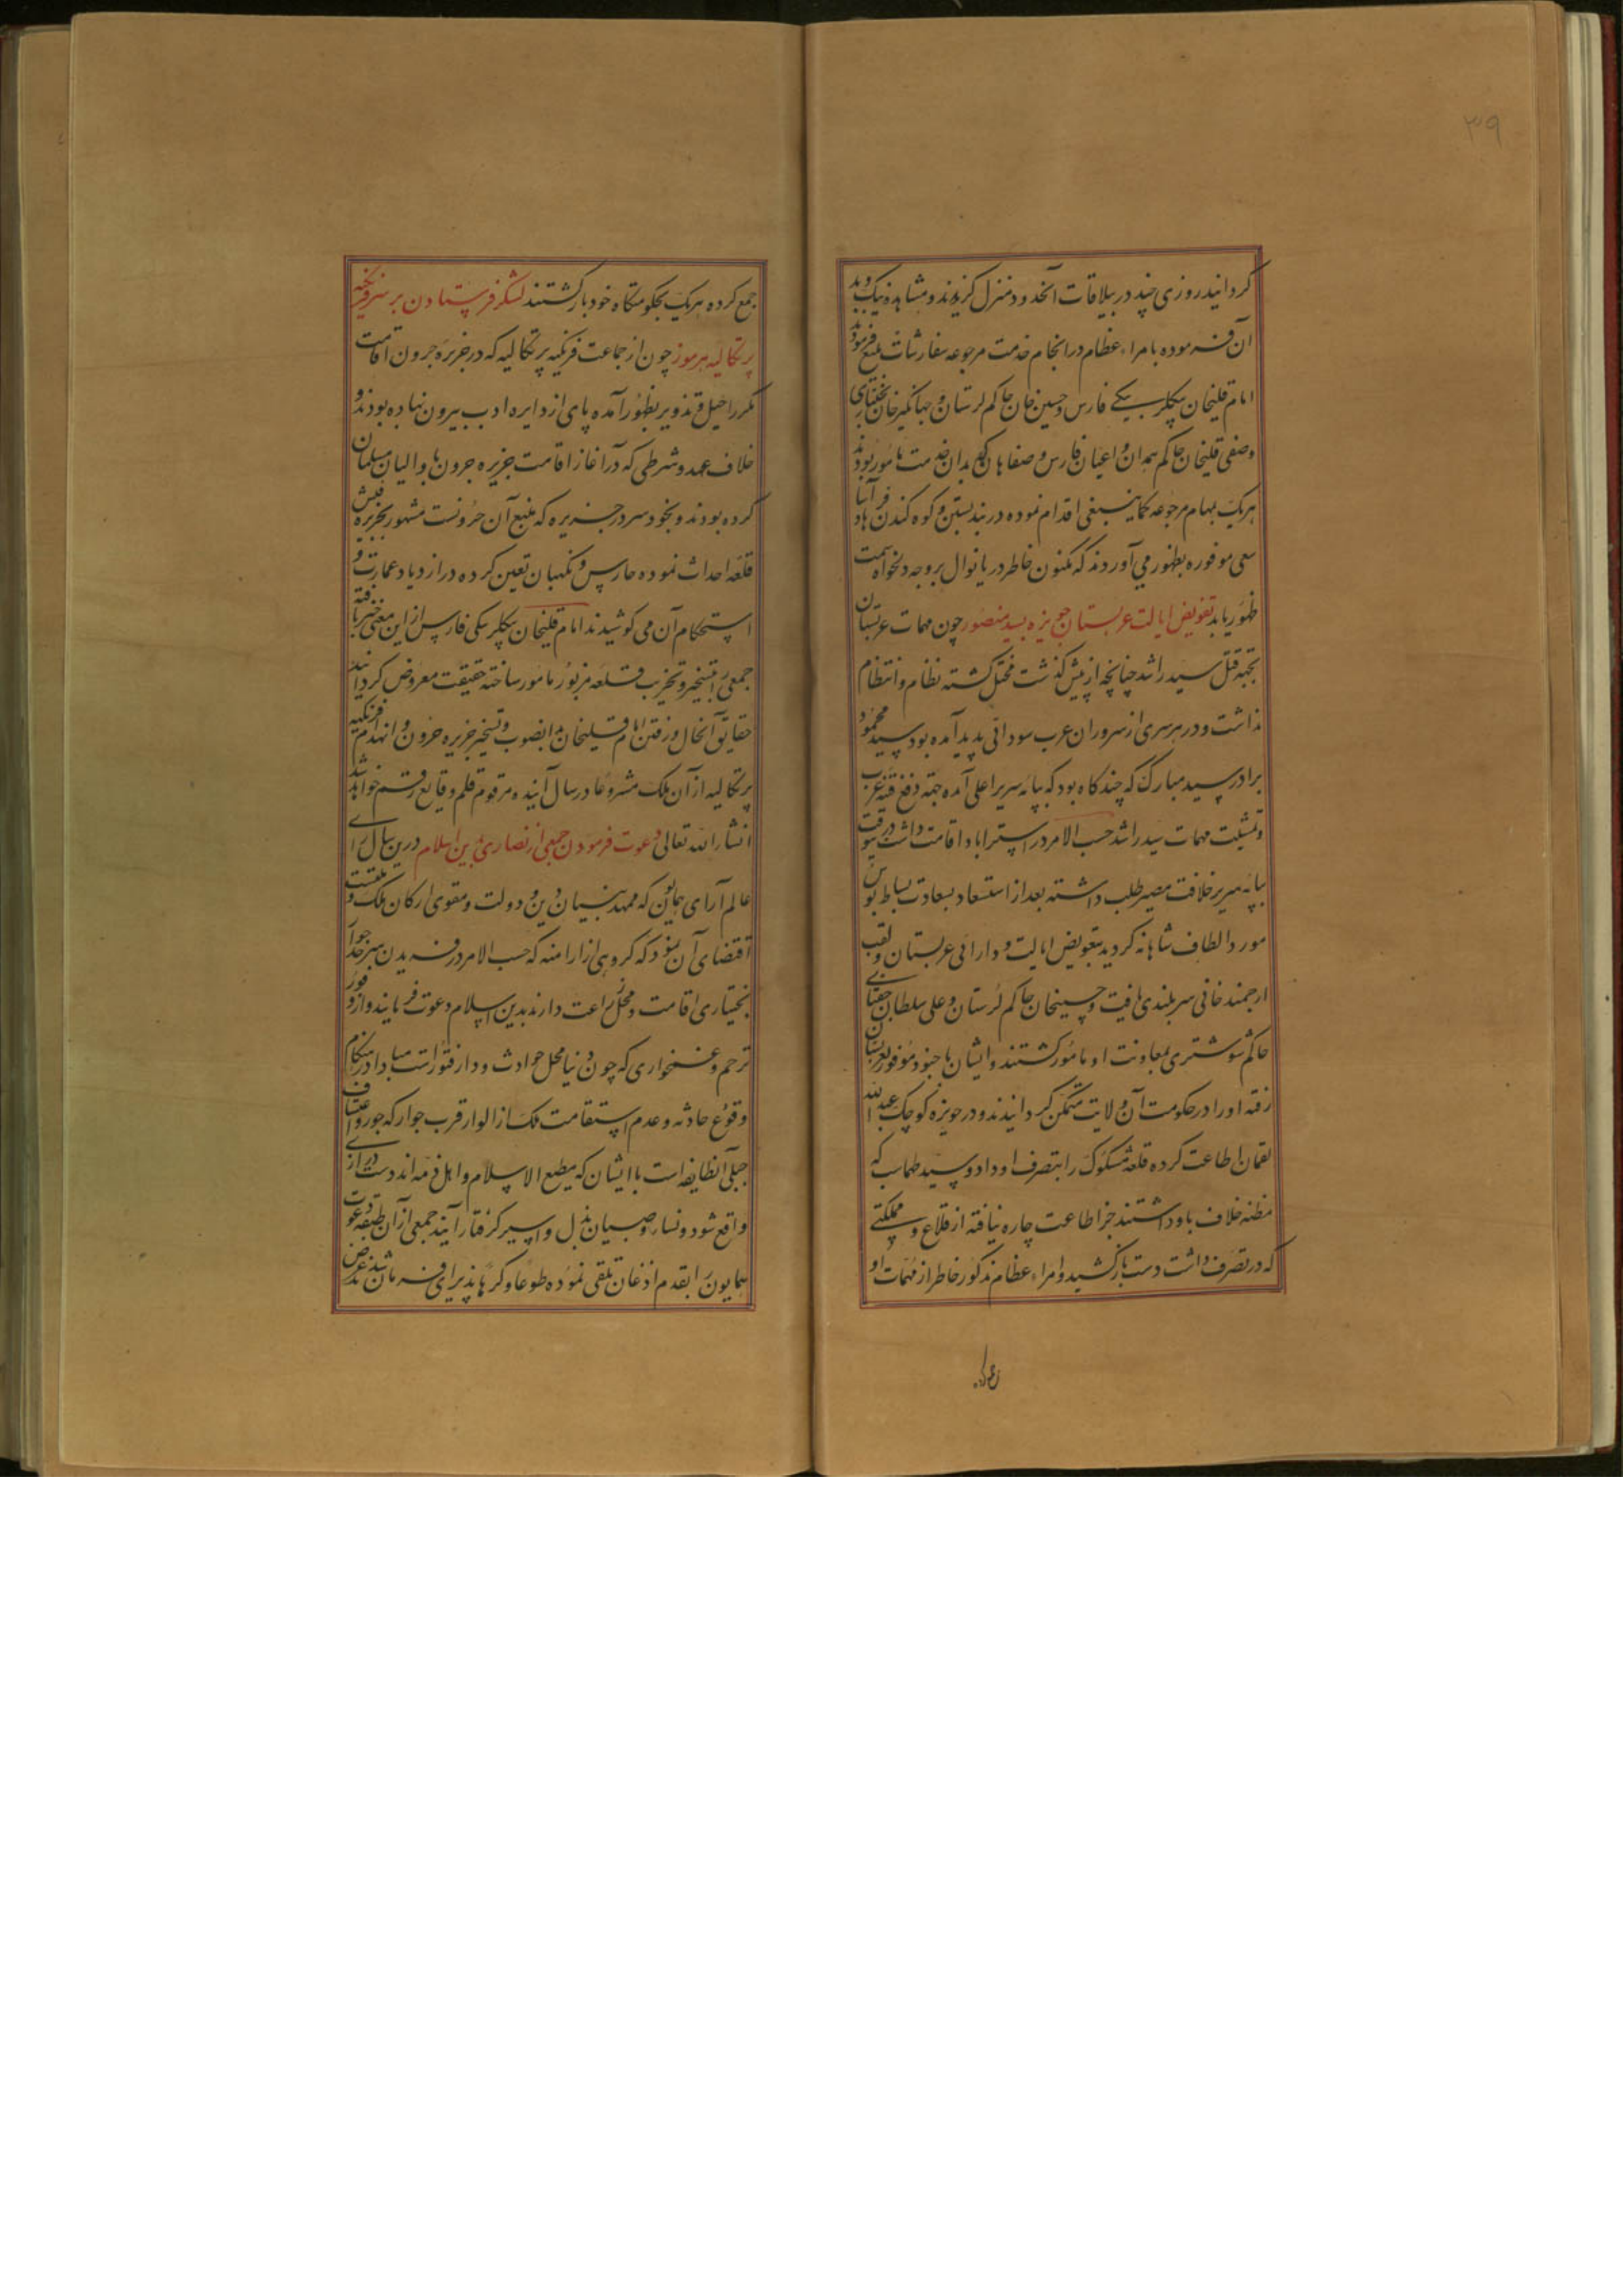 ۳۹
کردانید روزی چند در ییلاقات آنحدود منزل کزیدند و مشاهده نیک و بد
آن فرموده بامراء عظام در انجام خدمت مرجوعه سفارشات بلیغ فرمود
امام قلیخان بیکلربیکے فارس و حسین خان حاکم لرستان و جهانکیر خان بختیاری
و صفی قلیخان حاکم همدان و اعیان فارس و صفاهان که بدان خدمت مامور بودند
هریک بمهام مرجوعه کماینبغی اقدام نموده در بند بستن و کوه کندن
سعی موفوره بظهور می آوردند که مکنون خاطر دریا نوال بر وجه دلخواه سمت
ظهور یابد تفویض ایالت عربستان حویزه بسید منصور چون مهمات عربستان
بجهة قتل سید راشد چنانچه از پیش کذشت مختل کشته نظام و انتظام
نداشت و در هر سری از سروران عرب سودائی پدید آمده بود سید
برادر سید مبارک که چند کاه بود که بپایه سریر اعلی آمده جهة دفع فتنه عرب
و تمشیت مهمات سید راشد حسب الامر در استراباد اقامت داشت درین وقت
بپایه سریر خلافت مصیر طلب داشته بعد از استسعاد بسعادت بساط بوس
مورد الطاف شاهانه کردید بتفویض ایالت و دارائی عربستان و لقب
ارجمند خانی سربلندی یافت و حسینخان حاکم لرستان و علی سلطان
حاکم شوشتری بمعاونت او مامور کشتند و ایشان با جنود موفور بعربستان
رفته او را در حکومت آن ولایت متمکن کردانیدند و در حویزه کوچک عبد الله
لقمان اطاعت کرده قلعه مسکوک را بتصرف او داد و سید طهماسب که
مظنه خلاف باو داشتند جز اطاعت چاره نیافته از قلاع و مملکتے
که در تصرف داشت دست باز کشید و امراء عظام مذکور خاطر از مهمات او
جمع کرده هریک بحکومتکاه خود بازکشتند لشکر فرستادن بر سر فرنکیه
پرتکالیه هرموز چون از جماعت فرنکیه پرتکالیه که در جزیره جرون اقامت
مکرر اخیل و تذویر بظهور آمده پای از دایره ادب بیرون نهاده بودند و
خلاف عهد و شرطی که در آغاز اقامت جزیره جرون با والیان مسلمان
کرده بودند و بخود سر در جزیره که منبع آن جرونست مشهور بجزیره قیش
قلعه احداث نموده حارس و نکهبان تعیین کرده در ازدیاد عمارت و
استحکام آن می کوشیدند امام قلیخان بیکلربیکی فارس از این معنی خبر یافته
جمعی را بتسخیر و تخریب قلعه مزبور مامور ساخته حقیقت معروض کردانید
حقایق آنحال و رفتن امام قلیخان بدانصوب و تسخیر جزیره جرون و انهدام فرنکیه
پرتکالیه از آن ملک مشروعا در سال آینده مرقوم قلم وقایع رقم خواهد شد
انشاء الله تعالی دعوت فرمودن جمعی از نصاری بدین اسلام درین سال رای
عالم آرای همایون که ممهد بنیان دین و دولت و مقوی ارکان ملک و ملتست
اقتضای آن نمود که کروهی از ارامنه که حسب الامر در فریدن
بختیاری اقامت و محل زراعت دارند بدین اسلام دعوت فرمایند و از وفور
ترحم و غمخواری که چون دنیا محل حوادث و دار فتورات است مبادا در هنکام
وقوع حادثه و عدم استقامت ملک از الوار قرب جوار که جور و اعتساف
جبلی آنطایفه است با ایشان که مطیع الاسلام و اهل ذمه اند دست درازی
واقع شود و نساء و صبیان بذل و اسیر کرفتار آیند جمعی از آن طبقه دعوت
همایون را بقدم اذعان تلقی نموده طوعا و کرها پذیرای فرمان شدند